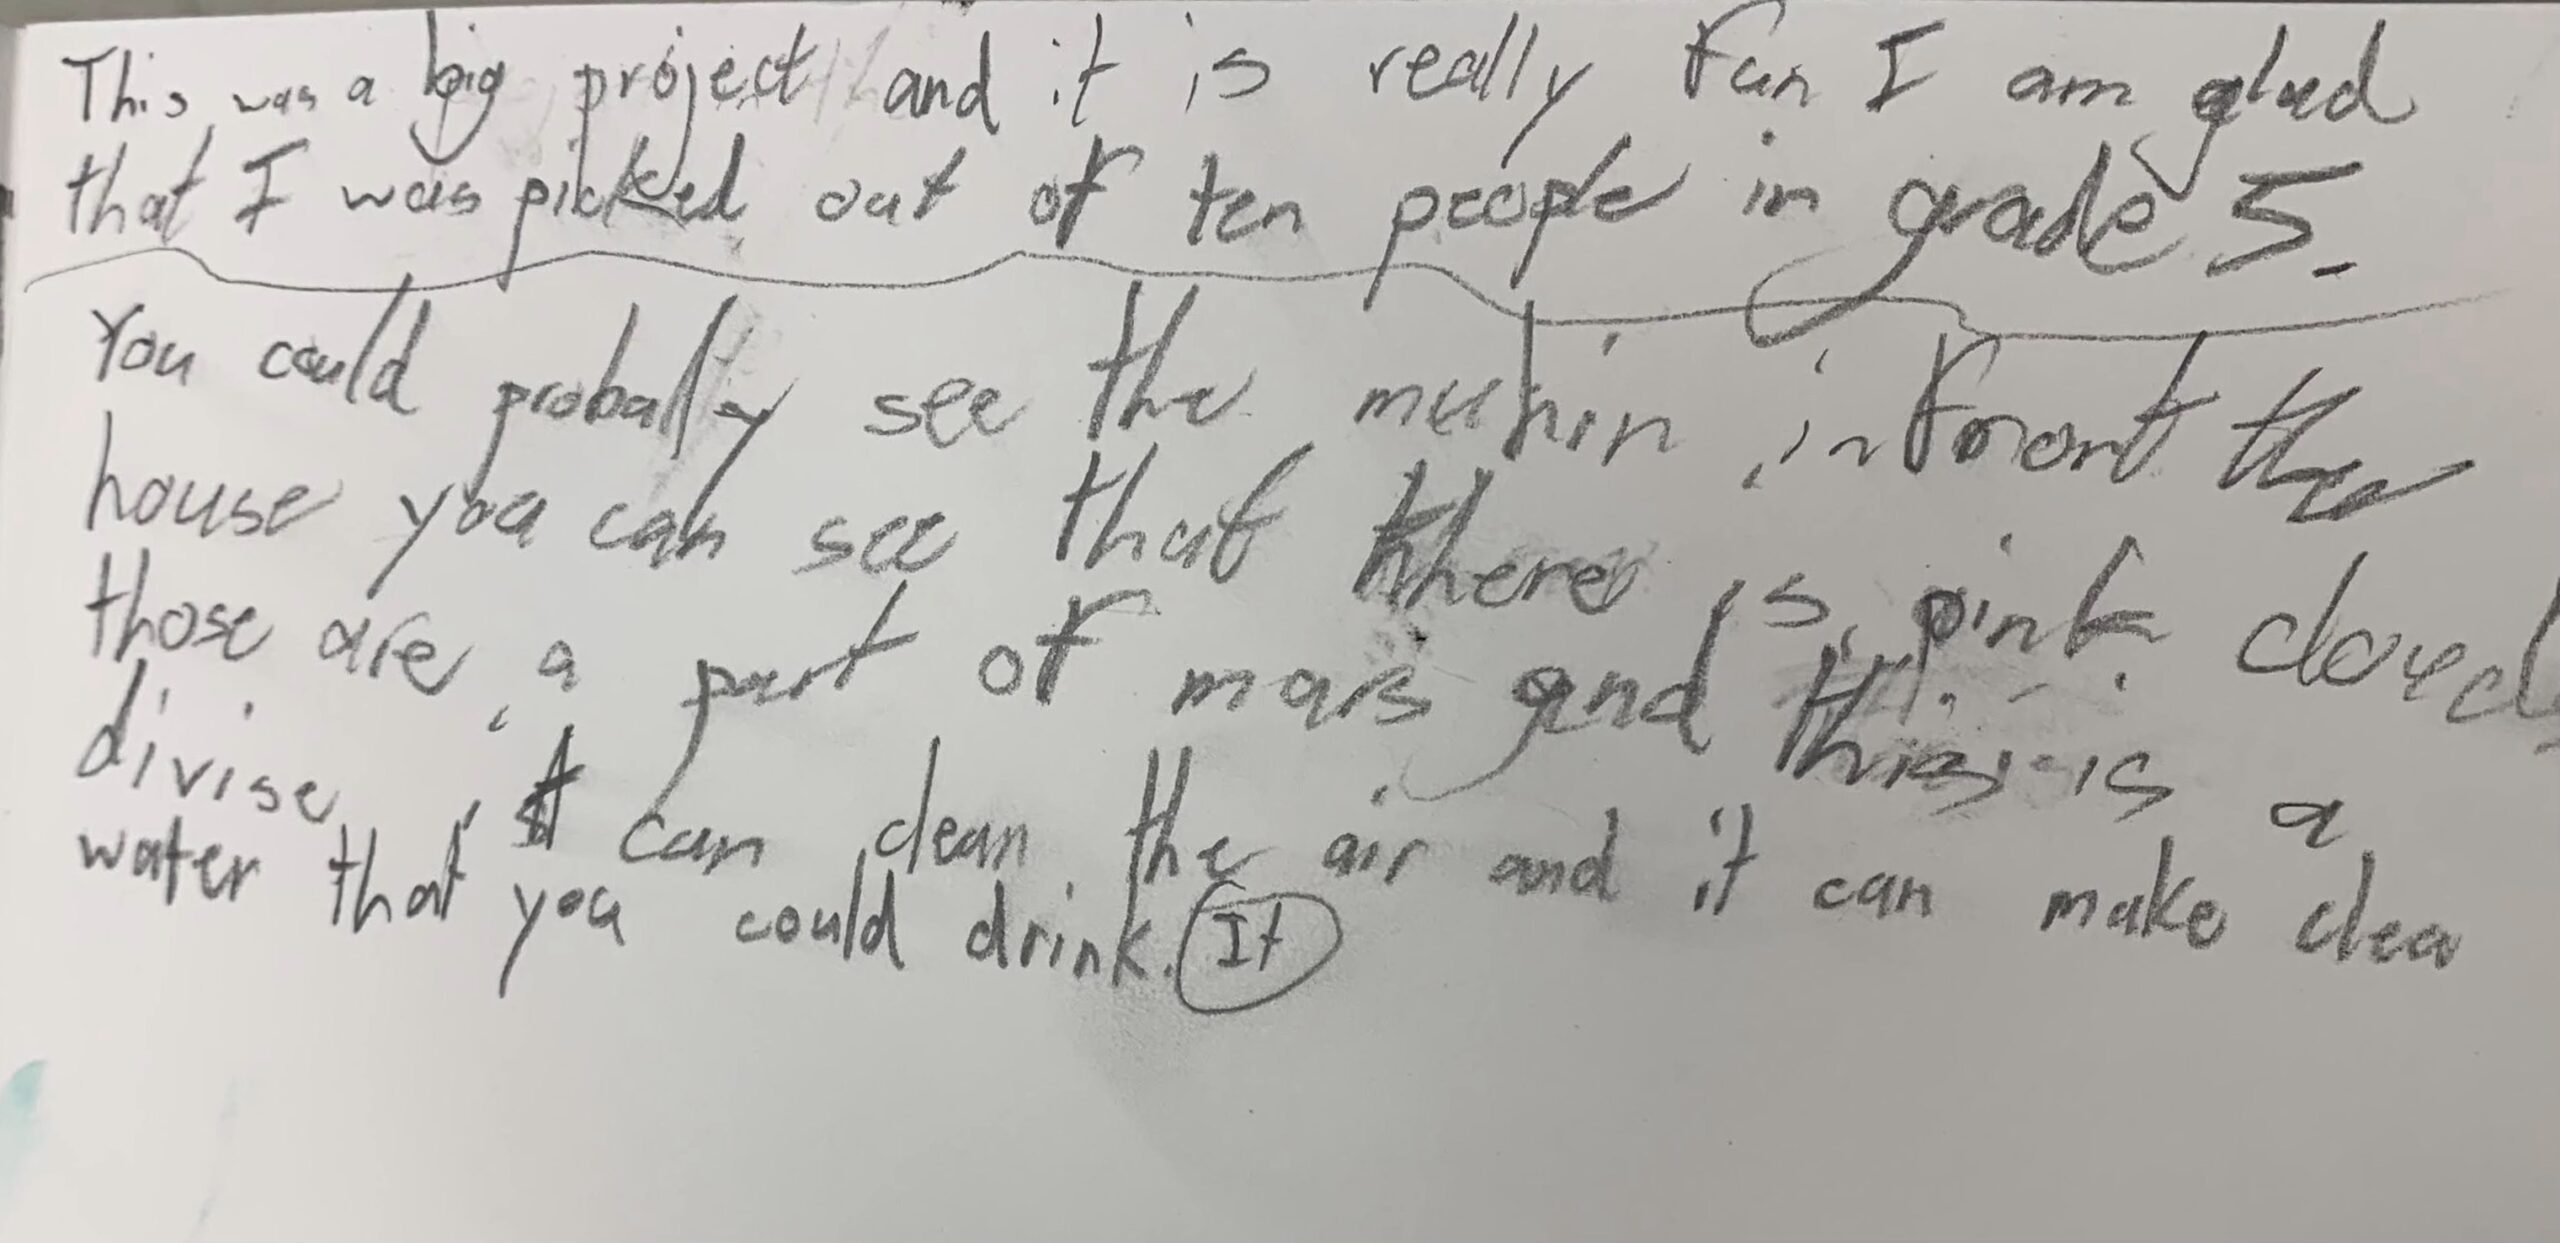 This was a big project and it is really fun I am glad
that I was picked out of ten people in grade 5.
You could probally see the muhin infront the
house you can see that there is pink cloud
those are a part of mars and this is a
divise it can clean the air and it can make clea
water that you could drink. It